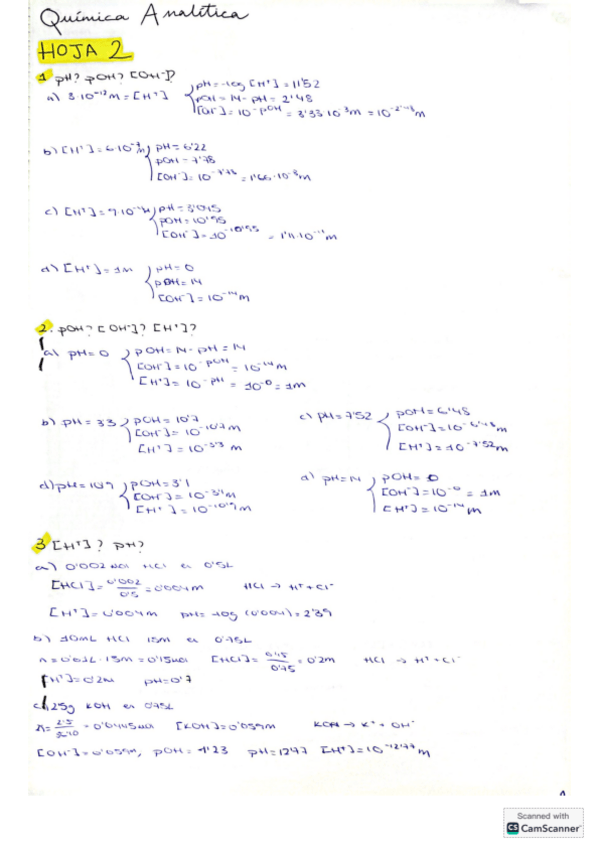 Química Analítica
HOJA 2
1 pH? pOH? [OH-]?
a) 3·10⁻¹²M = [H⁺] pH = -log [H⁺] = 11'52
pOH = 14 - pH = 2'48
[OH⁻] = 10^-pOH = 3'33·10⁻³M = 10^-2'48 M
b) [H⁺] = 6·10⁻⁷M pH = 6'22
pOH = 7'78
[OH⁻] = 10^-7'78 = 1'66·10⁻⁸M
c) [H⁺] = 9·10⁻⁴M pH = 3'045
pOH = 10'95
[OH⁻] = 10^-10'95 = 1'11·10⁻¹¹M
d) [H⁺] = 1M pH = 0
pOH = 14
[OH⁻] = 10⁻¹⁴M
2. pOH? [OH⁻]? [H⁺]?
a) pH = 0 pOH = 14 - pH = 14
[OH⁻] = 10^-pOH = 10⁻¹⁴M
[H⁺] = 10^-pH = 10⁻⁰ = 1M
b) pH = 3'3 pOH = 10'7
[OH⁻] = 10^-10'7 M
[H⁺] = 10^-3'3 M
c) pH = 7'52 pOH = 6'48
[OH⁻] = 10^-6'48 M
[H⁺] = 10^-7'52 M
d) pH = 10'9 pOH = 3'1
[OH⁻] = 10^-3'1 M
[H⁺] = 10^-10'9 M
a) pH = 14 pOH = 0
[OH⁻] = 10⁻⁰ = 1M
[H⁺] = 10⁻¹⁴M
3 [H⁺]? pH?
a) 0'002 mol HCl en 0'5L
[HCl] = 0'002/0'5 = 0'004M HCl → H⁺ + Cl⁻
[H⁺] = 0'004M pH = -log (0'004) = 2'39
b) 10mL HCl 15M en 0'75L
n = 0'01L · 15M = 0'15mol [HCl] = 0'15/0'75 = 0'2M HCl → H⁺ + Cl⁻
[H⁺] = 0'2M pH = 0'7
c) 2,5g KOH en 0'75L
KOH → K⁺ + OH⁻
[KOH] = 0'059M
[OH⁻] = 0'059M, pOH = 1'23 pH = 12'77 [H⁺] = 10^-12'77 M
Scanned with
CS CamScanner